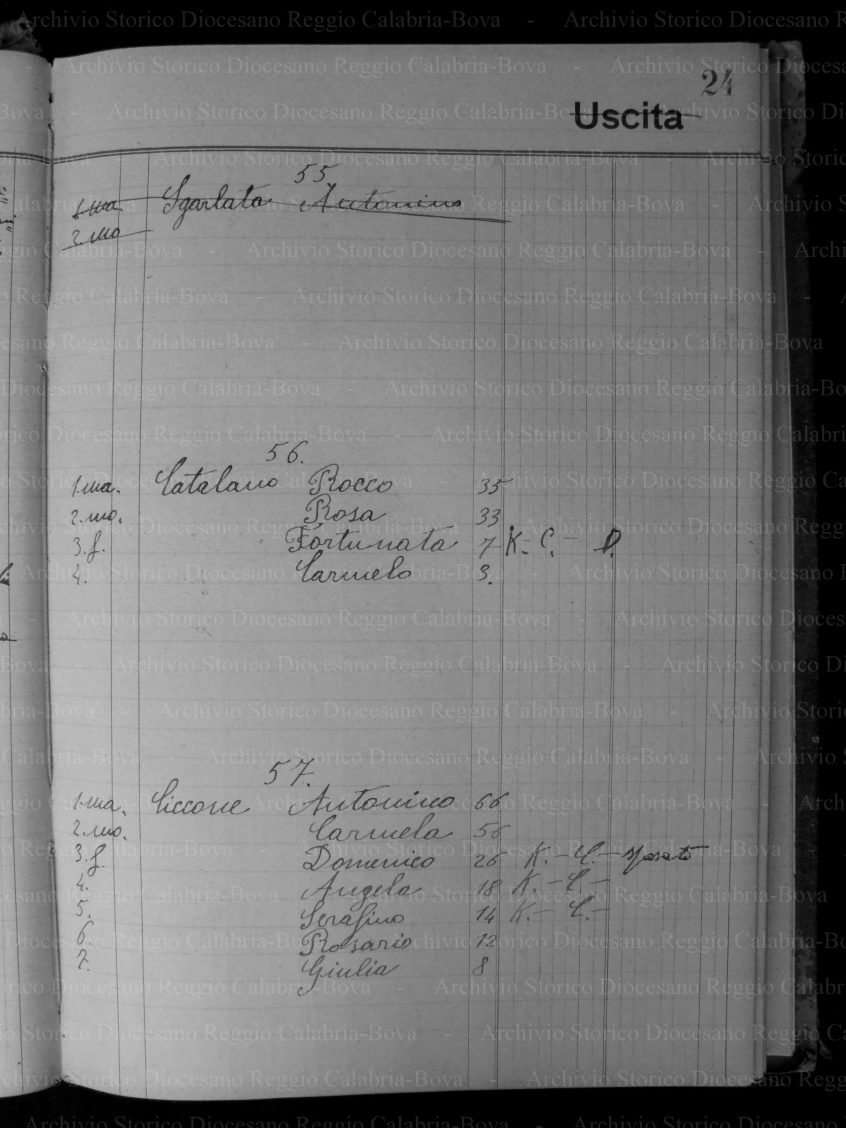 24
Uscita
55
1. ma Sgarlata Antonino
2. mo
56.
1. ma. Catalano Rocco 35
2. mo. Rosa 33
3. f. Fortunata 7 K. - C. - D.
4. Carmelo 3.
57.
1. ma. Ciccone Antonino 66
2. mo. Carmela 56
3. f. Domenico 26 K. - C. - sposato
4. Angela 18 K. - C. -
5. Serafino 14 K. - C. -
6. Rosario 12
7. Giulia 8
Archivio Storico Diocesano Reggio Calabria-Bova